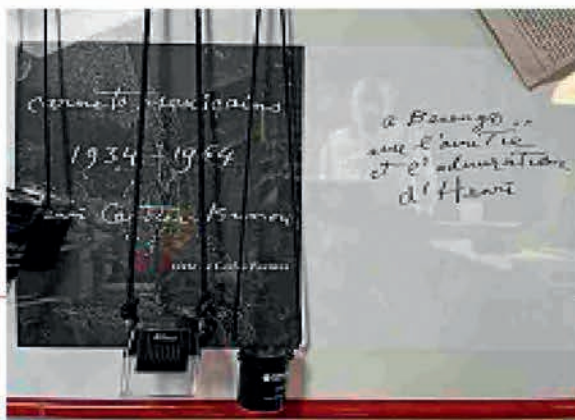 carnets mexicains
1934 - 1964
Henri Cartier-Bresson
Carlos Fuentes
a Berengo..
avec l'amitié
et l'admiration
d'Henri